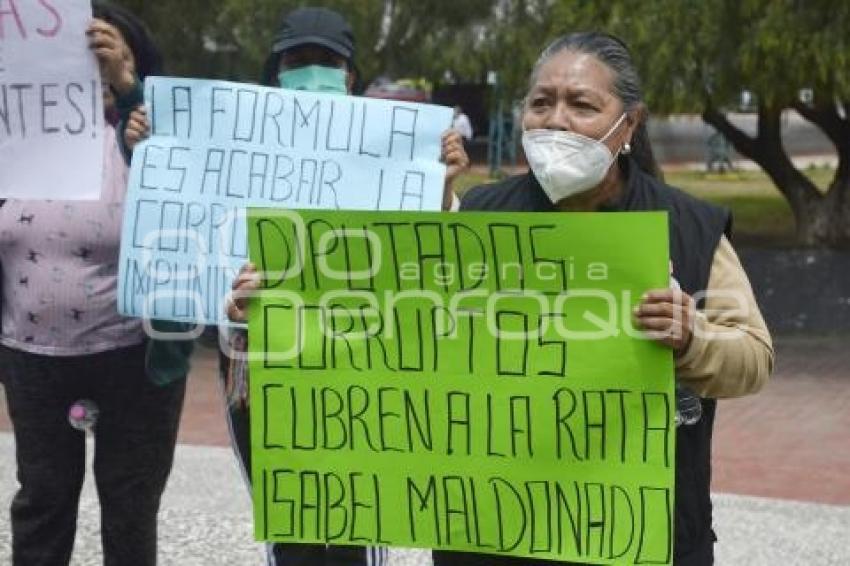 AS
ANTES!
LA FORMULA
ES ACABAR LA
DIPUTADOS
CORRUPTOS
CUBREN A LA RATA
ISABEL MALDONADO
agencia
enfoque